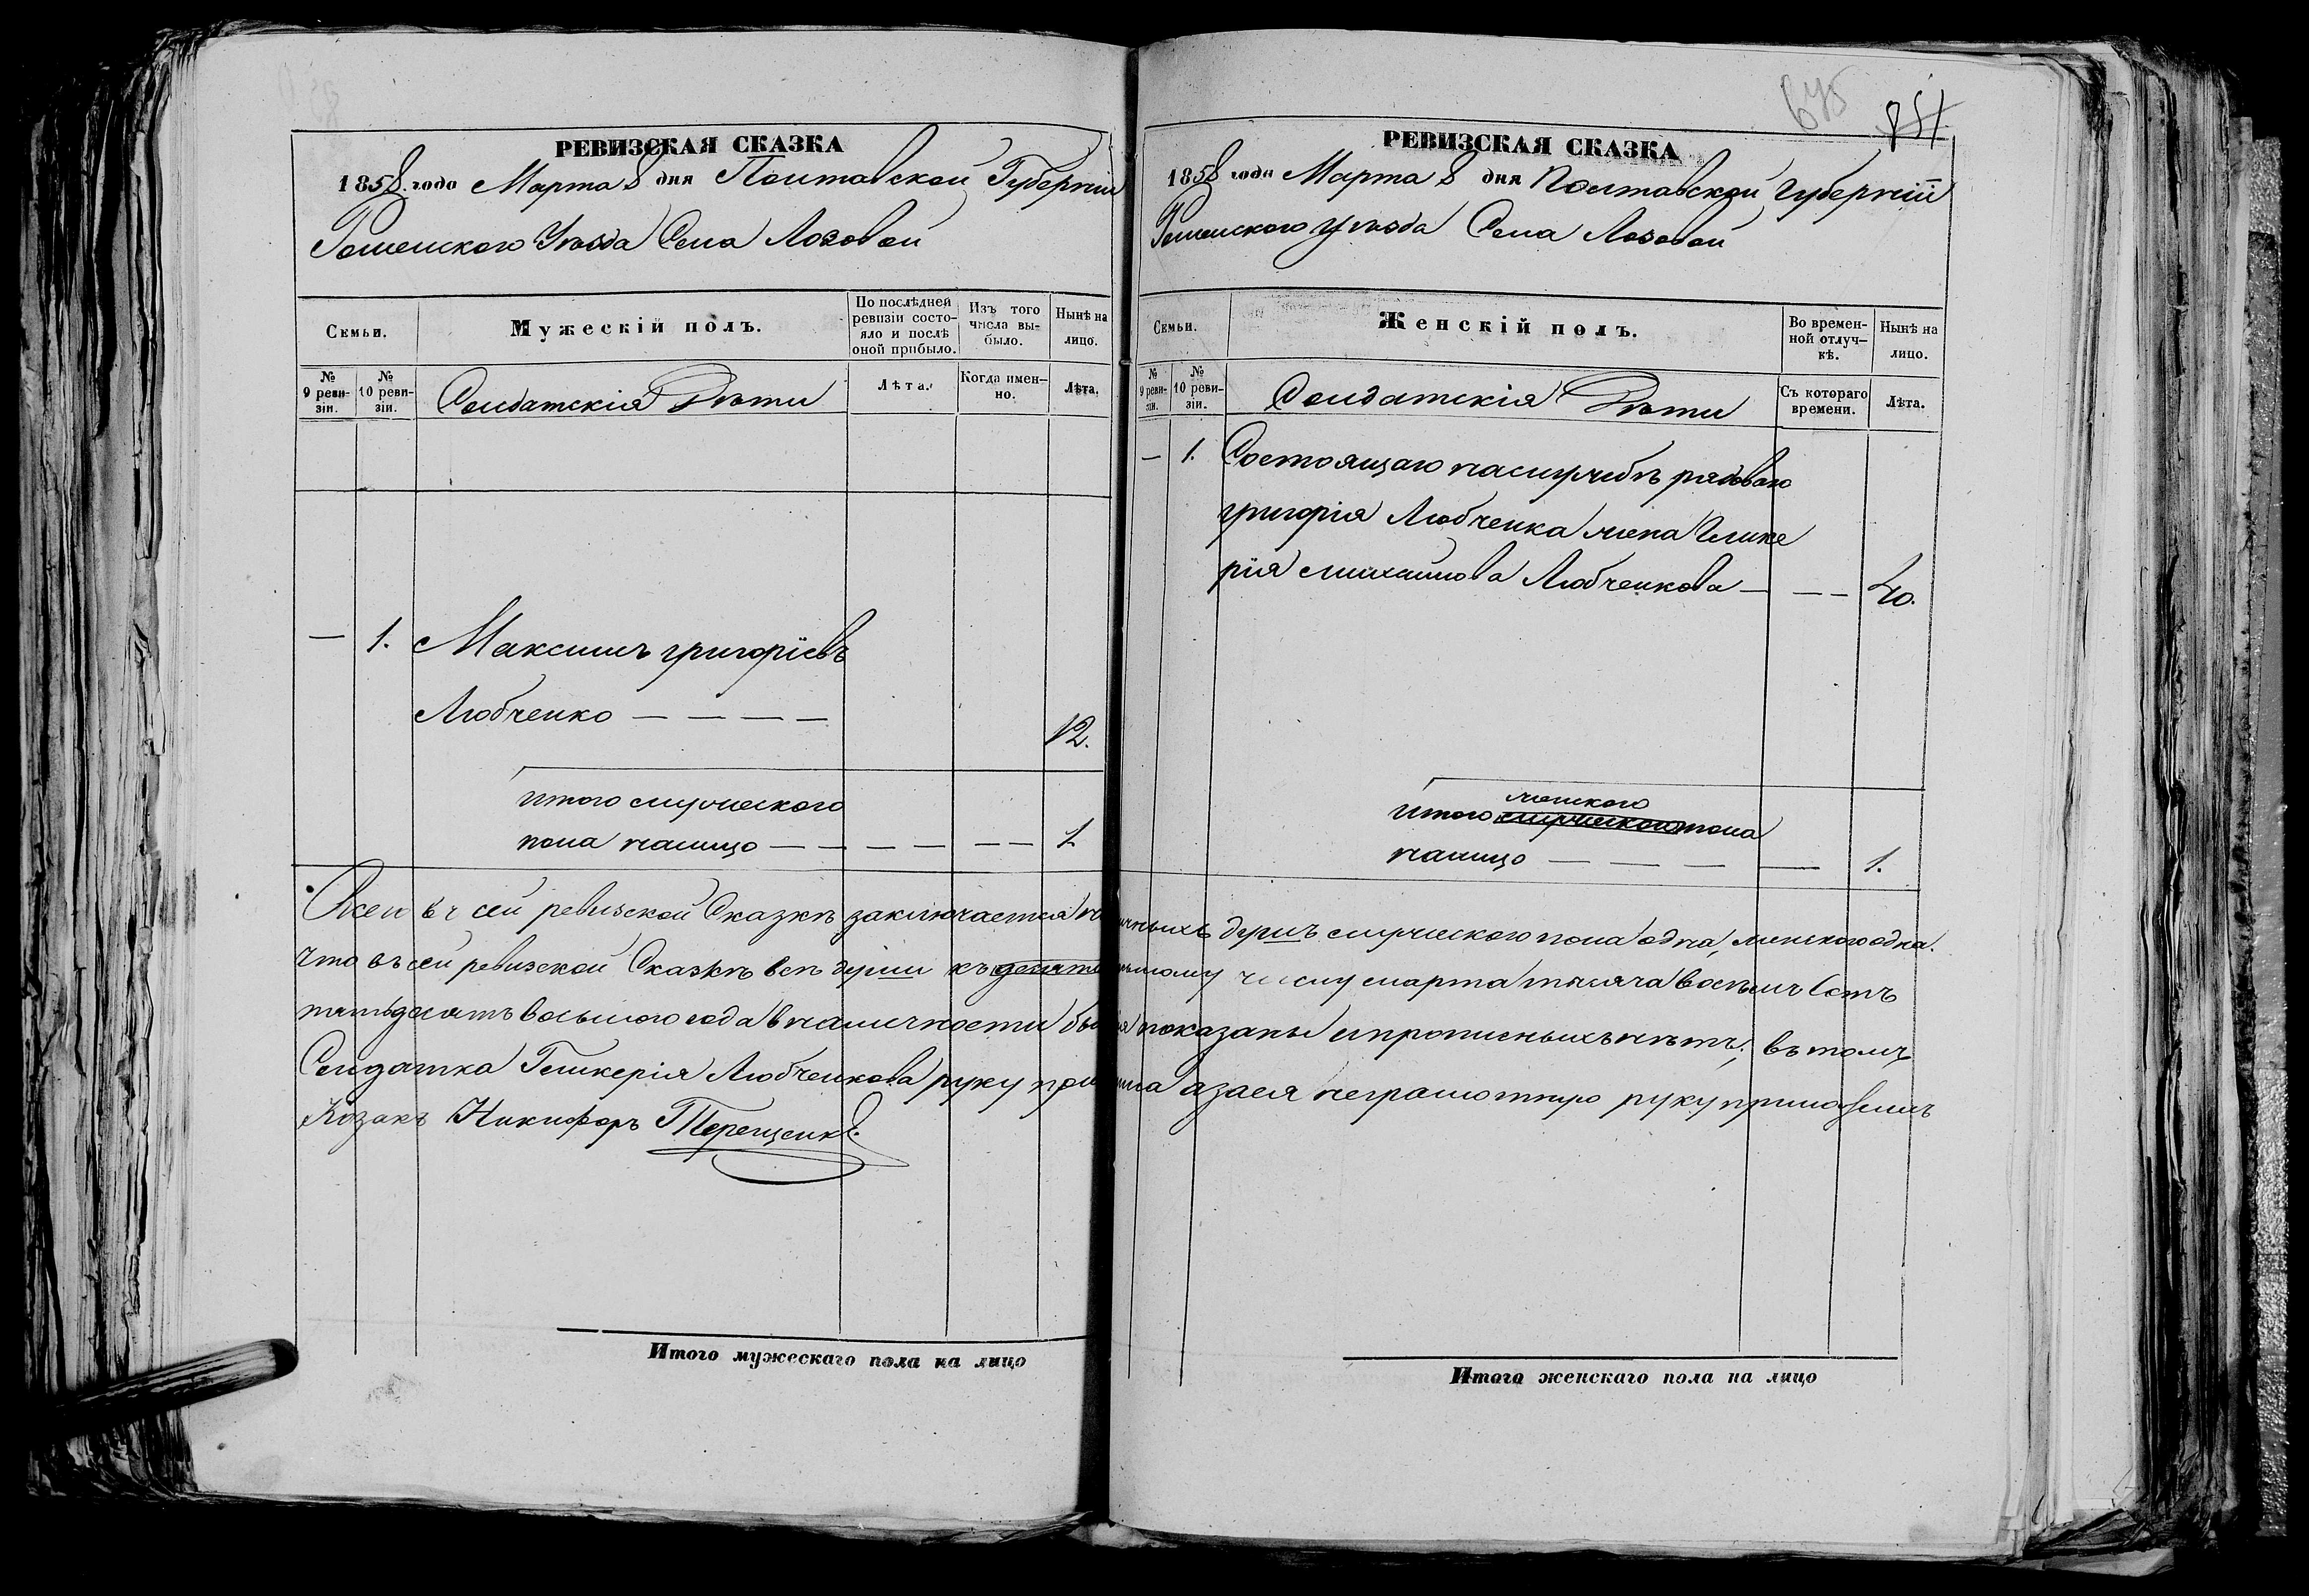 РЕВИЗСКАЯ СКАЗКА
1858 года Марта 8 дня Полтавской Губерніи
Роменского Уѣзда Села Лозовой
Семьи.
Мужескій полъ.
По послѣдней ревизіи состояло и послѣ оной прибыло.
Изъ того числа выбыло.
Нынѣ на лицо.
№ 9 ревизіи.
№ 10 ревизіи.
Солдатскія Дѣти
Лѣта.
Когда именно.
Лѣта.
— 1. Максимъ григоріевъ
Любченко — — — — 12.
итого мужеского
пола налицо — — — — — — 1
Итого мужескаго пола на лицо
675
851
РЕВИЗСКАЯ СКАЗКА
1858 года Марта 8 дня Полтавской Губерніи
Роменского Уѣзда Села Лозовой
Семьи.
Женскій полъ.
Во временной отлучкѣ.
Нынѣ на лицо.
№ 9 ревизіи.
№ 10 ревизіи.
Солдатскія Дѣти
Съ котораго времени.
Лѣта.
— 1. Состоящаго наслужбѣ рядоваго
григорія Любченка жена Глике
рія михайлова Любченкова — — — 40.
женского
итого мужеского пола
налицо — — — — — 1.
Всего въ сей ревизской Сказкѣ заключается наличныхъ душъ мужеского пола одна, женского одна.
Что въ сей ревизской Сказкѣ всѣ души къ числу марта тысяча восемь сотъ
пятьдесятъ восьмого года вналичности показаны ипрописныхъ нѣтъ; въ томъ
Солдатка Гликерія Любченкова руку приложила азаея неграмотную руку приложилъ
Козакъ Никифоръ Терещенко.
Итого женскаго пола на лицо